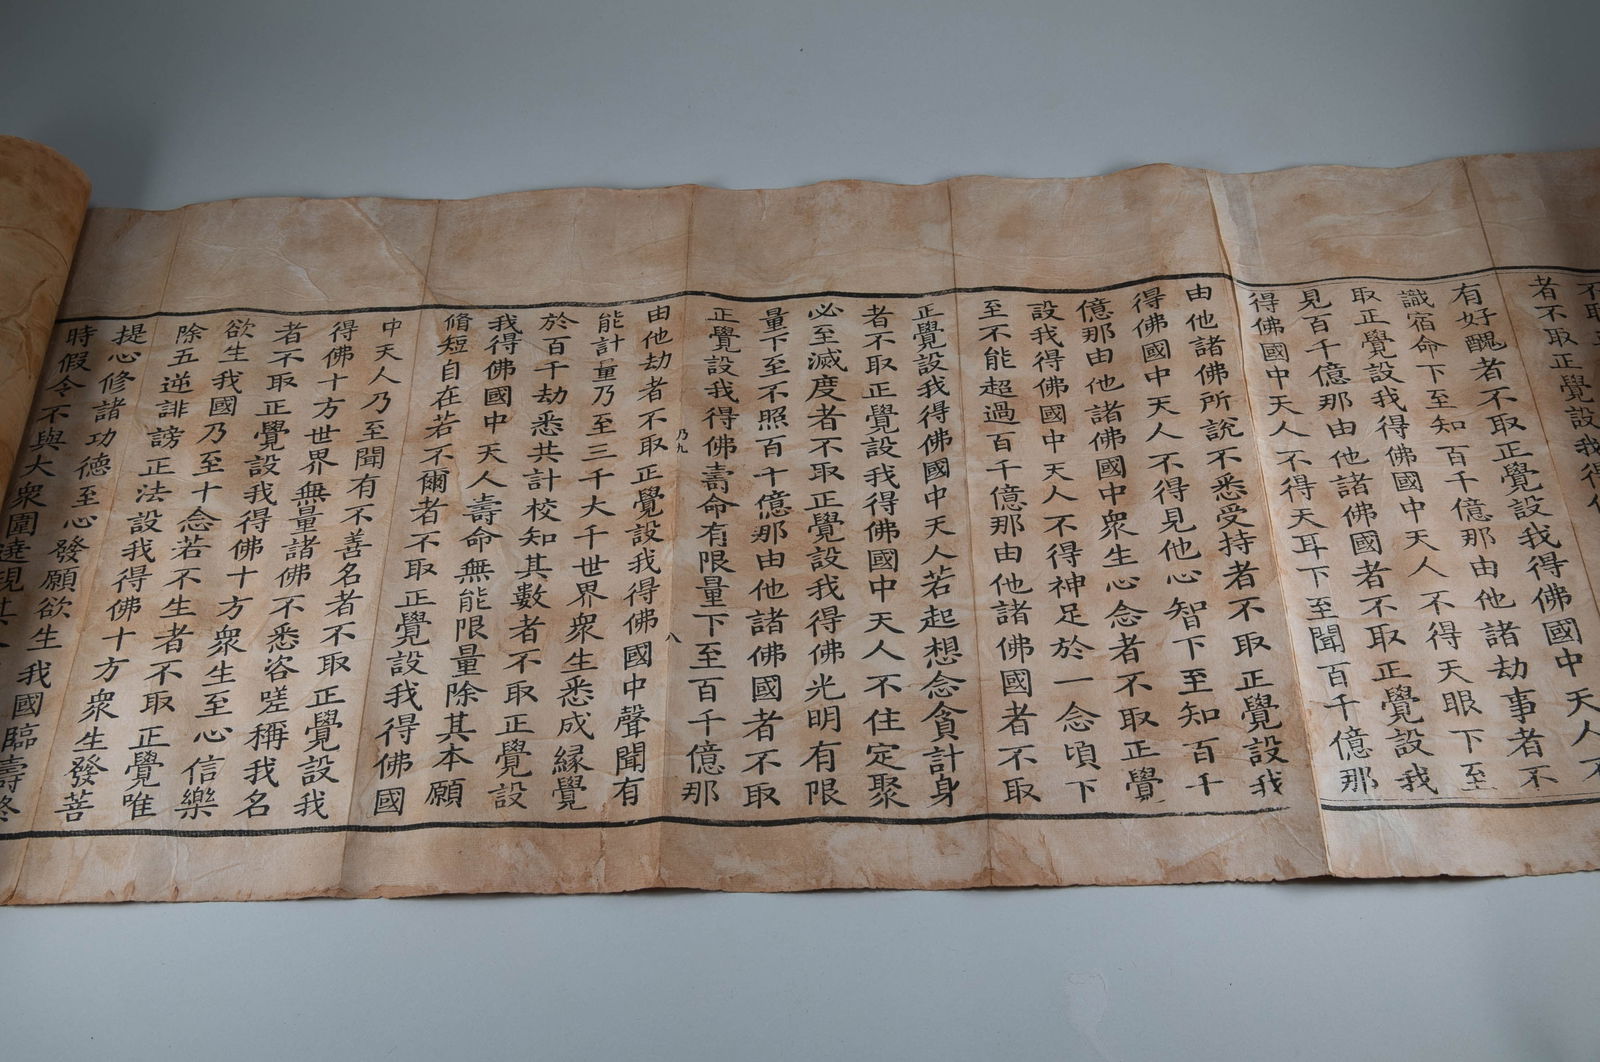 者不取正覺設我得
有好醜者不取正覺設我得佛國中天人不
識宿命下至知百千億那由他諸劫事者不
取正覺設我得佛國中天人不得天眼下至
見百千億那由他諸佛國者不取正覺設我
得佛國中天人不得天耳下至聞百千億那
由他諸佛所說不悉受持者不取正覺設我
得佛國中天人不得見他心智下至知百千
億那由他諸佛國中衆生心念者不取正覺
設我得佛國中天人不得神足於一念頃下
至不能超過百千億那由他諸佛國者不取
正覺設我得佛國中天人若起想念貪計身
者不取正覺設我得佛國中天人不住定聚
必至滅度者不取正覺設我得佛光明有限
量下至不照百千億那由他諸佛國者不取
正覺設我得佛壽命有限量下至百千億那
乃九 八
由他劫者不取正覺設我得佛國中聲聞有
能計量乃至三千大千世界衆生悉成緣覺
於百千劫悉共計校知其數者不取正覺設
我得佛國中天人壽命無能限量除其本願
脩短自在若不爾者不取正覺設我得佛國
中天人乃至聞有不善名者不取正覺設我
得佛十方世界無量諸佛不悉咨嗟稱我名
者不取正覺設我得佛十方衆生至心信樂
欲生我國乃至十念若不生者不取正覺唯
除五逆誹謗正法設我得佛十方衆生發菩
提心修諸功德至心發願欲生我國臨壽終
時假令不與大衆圍遶現其